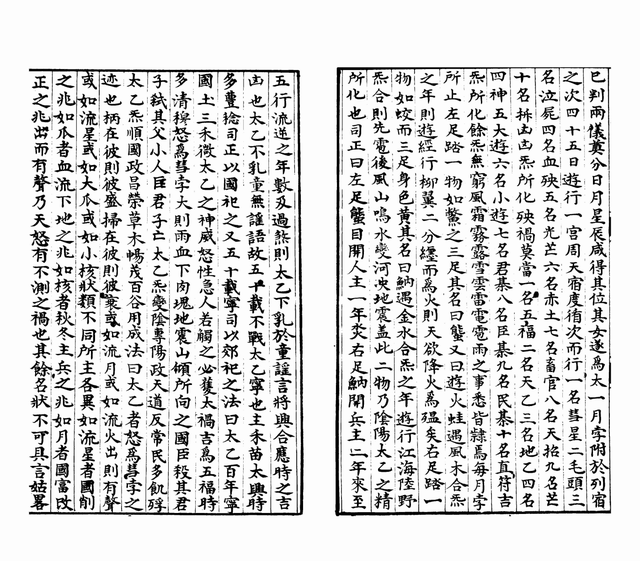 已判兩儀冀分日月星辰咸得其位其女遂為太一月孛附於列宿
之次四十五日遊行一宮周天宿度循次而行一名彗星二毛頭三
名泣屍四名血殃五名光芒六名赤土七名畜官八名天掐九名芒
十名拆凶凶炁所化殃禍莫當一名五福二名天乙三名地乙四名
四神五大遊六名小遊七名君棊八名臣棊九名民棊十名直符吉
炁所化餘炁無窮風霜霧露雪雲雷電雹雨之事悉皆隸焉每月孛
所止左足踏一物如鱉之三足其名曰蠥又曰遊火蛙遇風木合炁
之年則遊經行柳翼二分纏而為火則天欲降火為殟矣右足踏一
物如蛟而三足身色黃其名曰魶遇金水合炁之年遊行江海陸野
炁合則先電後風山鳴水變河泱地震蓋此二物乃陰陽太乙之精
所化也司正曰左足蠥目開人主一年炎右足魶開兵主二年來至
五行流逆之年數及過然則太乙下乳於童謠言將興合應時之吉
凶也太乙不乳童無謠語故五十載不戰太乙寧也主禾苗太興時
多豐稔司正以國祀之又五十載寧司以郊祀之法曰太乙百年寧
國土三禾微太乙之神威怒性急人若觸之必獲太禍吉為五福時
多清穆怒為彗孛大則雨血下肉塊地震山傾所向之國臣殺其君
子弒其父小人臣君子亡太乙炁變陰專陽政天道反常民多飢殍
太乙炁順國政昌榮草木暢茂百谷用成法曰太乙者怒為彗孛之
迹也柄在彼則彼盛掃在彼則彼衰或如流月或如流火出則有聲
或如流星或如大瓜或如小核狀類不同所主各異如流星者國削
之兆如瓜者血流下地之兆如核者秋冬主兵之兆如月者國富改
正之兆出而有聲乃天怒有不測之禍也其餘名狀不可具言姑畧